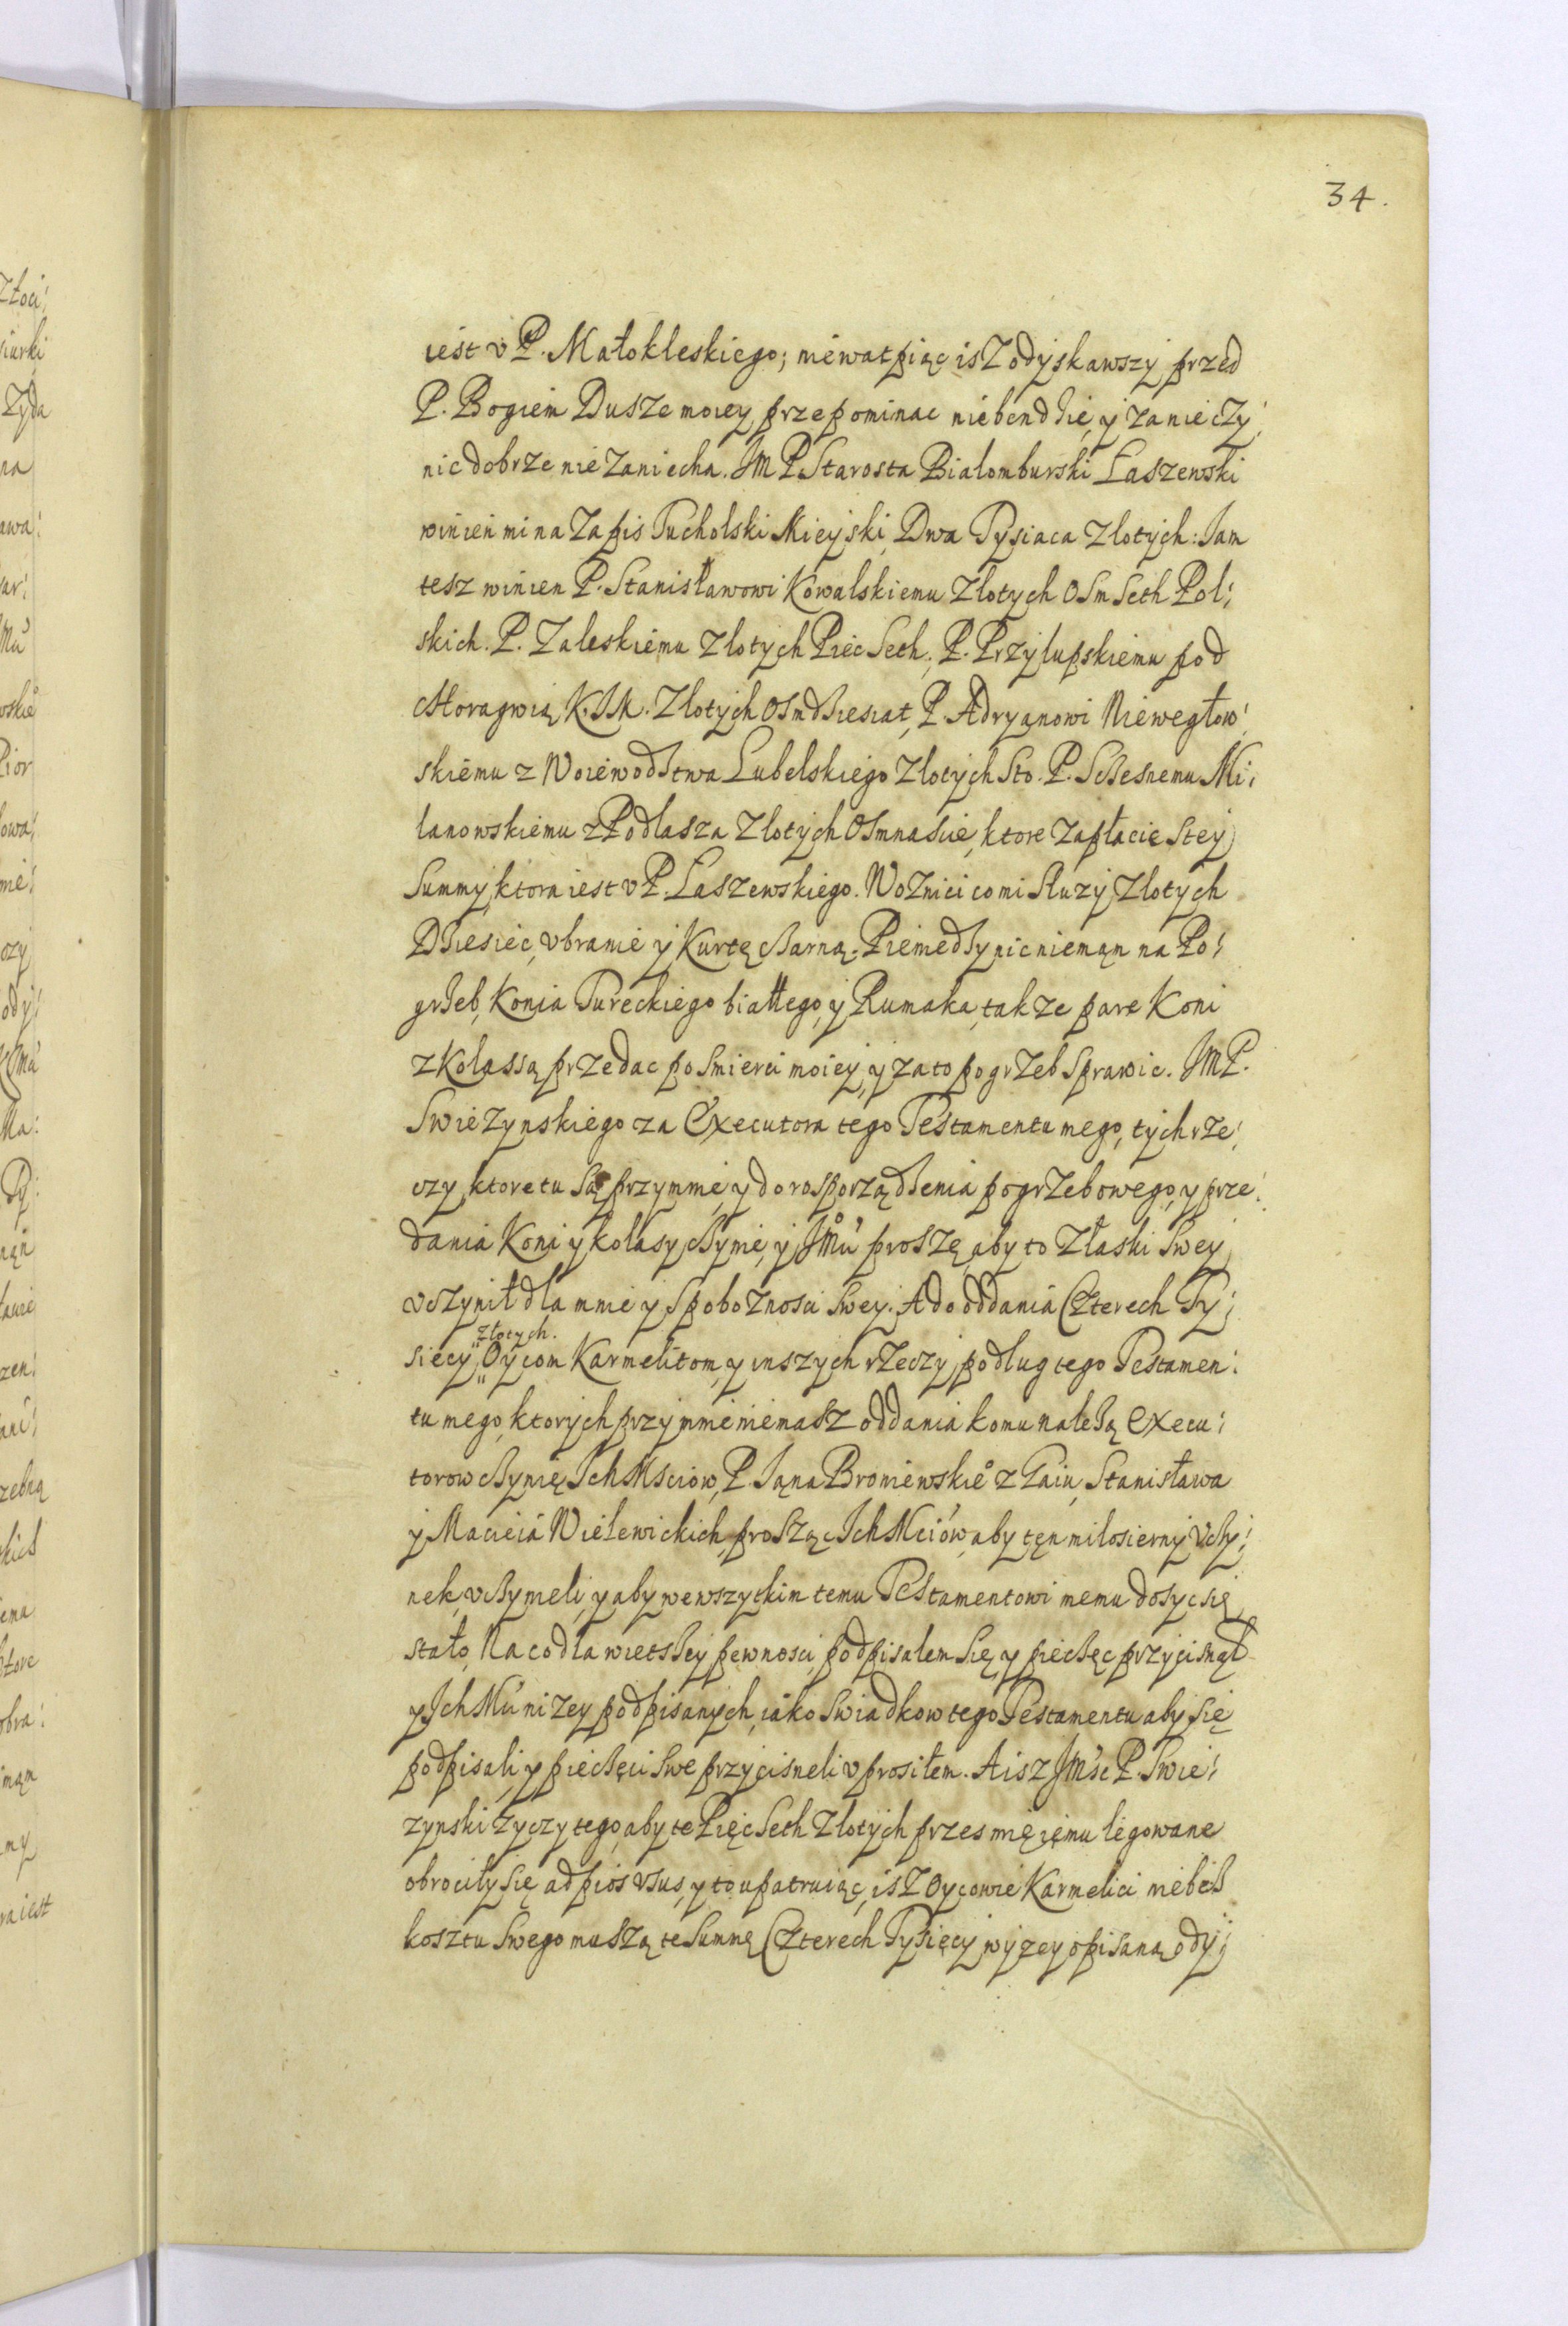 34.
iest v P. Małokleskiego; niewatpiąc isz odyskawszy przed
P. Bogiem Dusze moiey przepominac niebendzie, y za nie czy:
nic dobrze nie zaniecha. JMP. Starosta Białomburski Łaszewski
winien mi na Zapis Tucholski Mieyski, Dwa Tysiaca Złotych: Iam
tesz winien P. Stanisławowi Kowalskiemu Złotych Osm Seth Pol:
skich. P. Zaleskiemu Złotych Piec Seth, P. Przyłupskiemu pod
choragwią K. J. M. Złotych Osmdziesiat, P. Adryanowi Niewegłow:
skiemu z Woiewodstwa Lubelskiego Złotych Sto. P. Sczesnemu Mi:
lanowskiemu z Podlasza Złotych Osmnascie, ktore zapłacie s tey
Summy, ktora iest v P. Łaszewskiego. Woznici co mi Sluzy Złotych
Dziesiec, vbranie y Kurtę czarną. Pieniedzy nic niemąn na Po:
grzeb, Konia Tureckiego białłego, y Rumaka, takze pare Koni
z Kolassą przedac po smierci moiey, y za to pogrzeb Sprawic. JMP.
Swiezynskiego za Executora tego Testamentu mego, tych rze:
czy, ktore tu Są przymnie, y do rosporządzenia pogrzebowego, y prze:
dania Koni y kolasy czynie, y JMu proszę, aby to z łaski swey
vczynił dla mnie y s pobożnosci swey. A do oddania Czterech Ty:
siecy złotych. Oycom Karmelitom, y inszych rzeczy podlug tego Testamen:
tu mego, ktorych przymnie niemasz oddania komu należą Execu:
torow czynię Ich Mściow, P. Jana Broniewskie° z Gaiu, Stanisława
y Macieia Wielewickich, prosząc Ich Mciów, aby tęn miłosierny Vczy:
nek, vczynieli, y aby wewszytkim temu Testamentowi memu dosyc się
stało, Na co dla wietszey pewnosci podpisalem Się, y pieczęc przycisnął
y Ich Mu nizey podpisanych, iako swiadkow tego Testamentu aby się
podpisali, y pieczęci Swe przycisneli vprosiłem. A isz JMśc P. Swie:
zynski zyczy tego, aby te Pięc Seth Złotych przes mię iemu legowane
obrociły się ad pios vsus, y to upatruiąc, isz Oycowie Karmelici niebesz
kosztu Swego muszą te Summę Czterech Tysięcy wyzey opisaną ody: